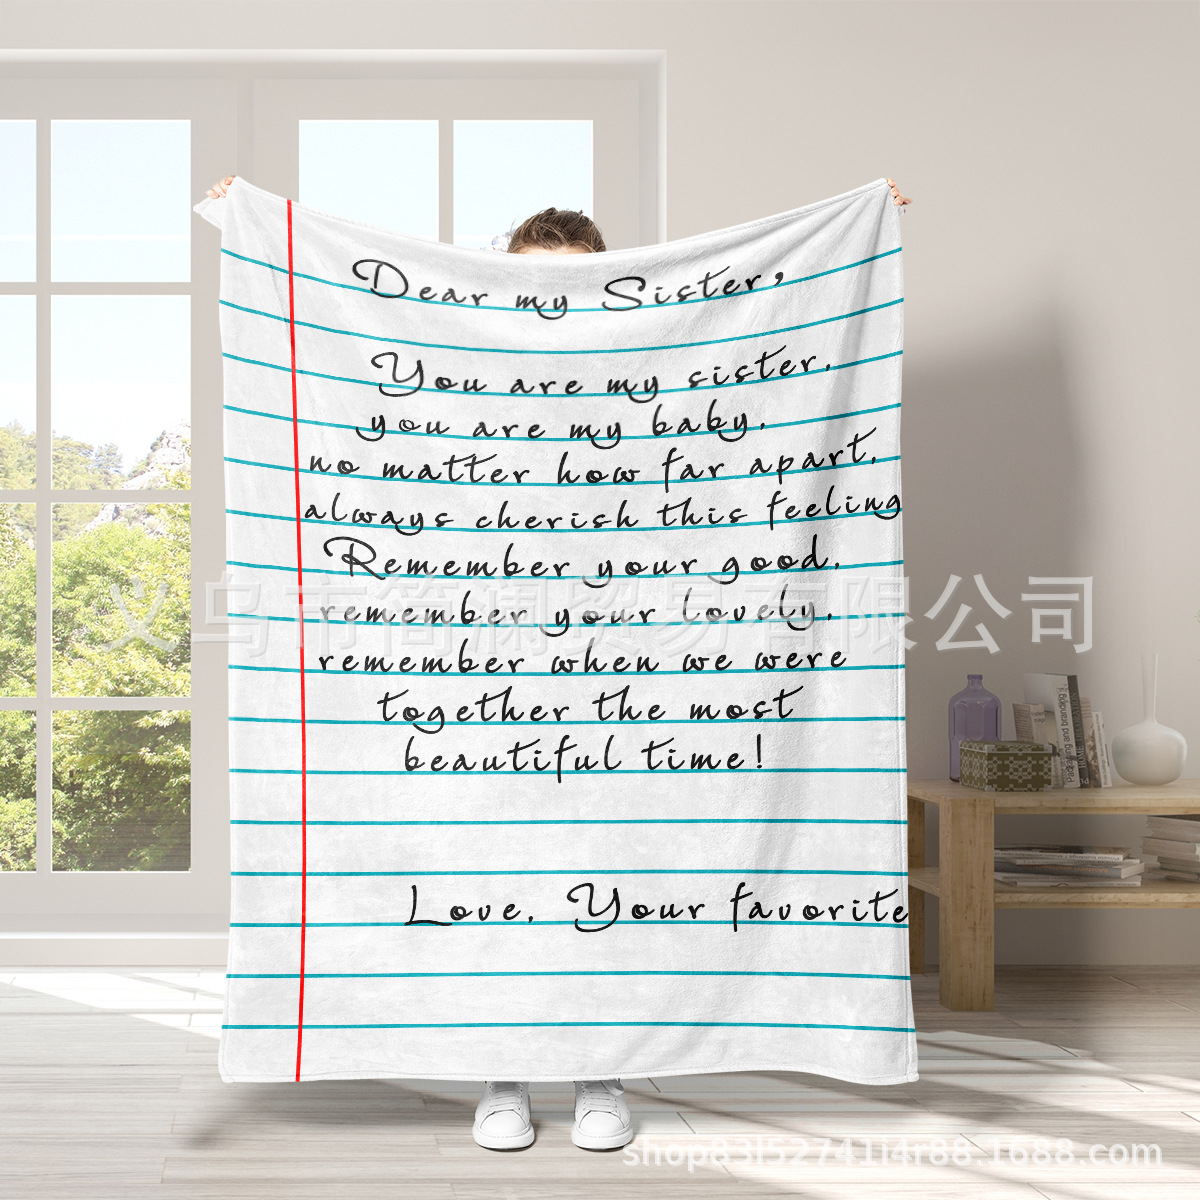 Dear my Sister,
You are my sister,
you are my baby,
no matter how far apart,
always cherish this feeling
Remember your good,
remember your lovely,
remember when we were
together the most
beautiful time!
Love, Your favorite
义乌市简澜贸易有限公司
Packaging and branding
shop83l52741i4r88.1688.com